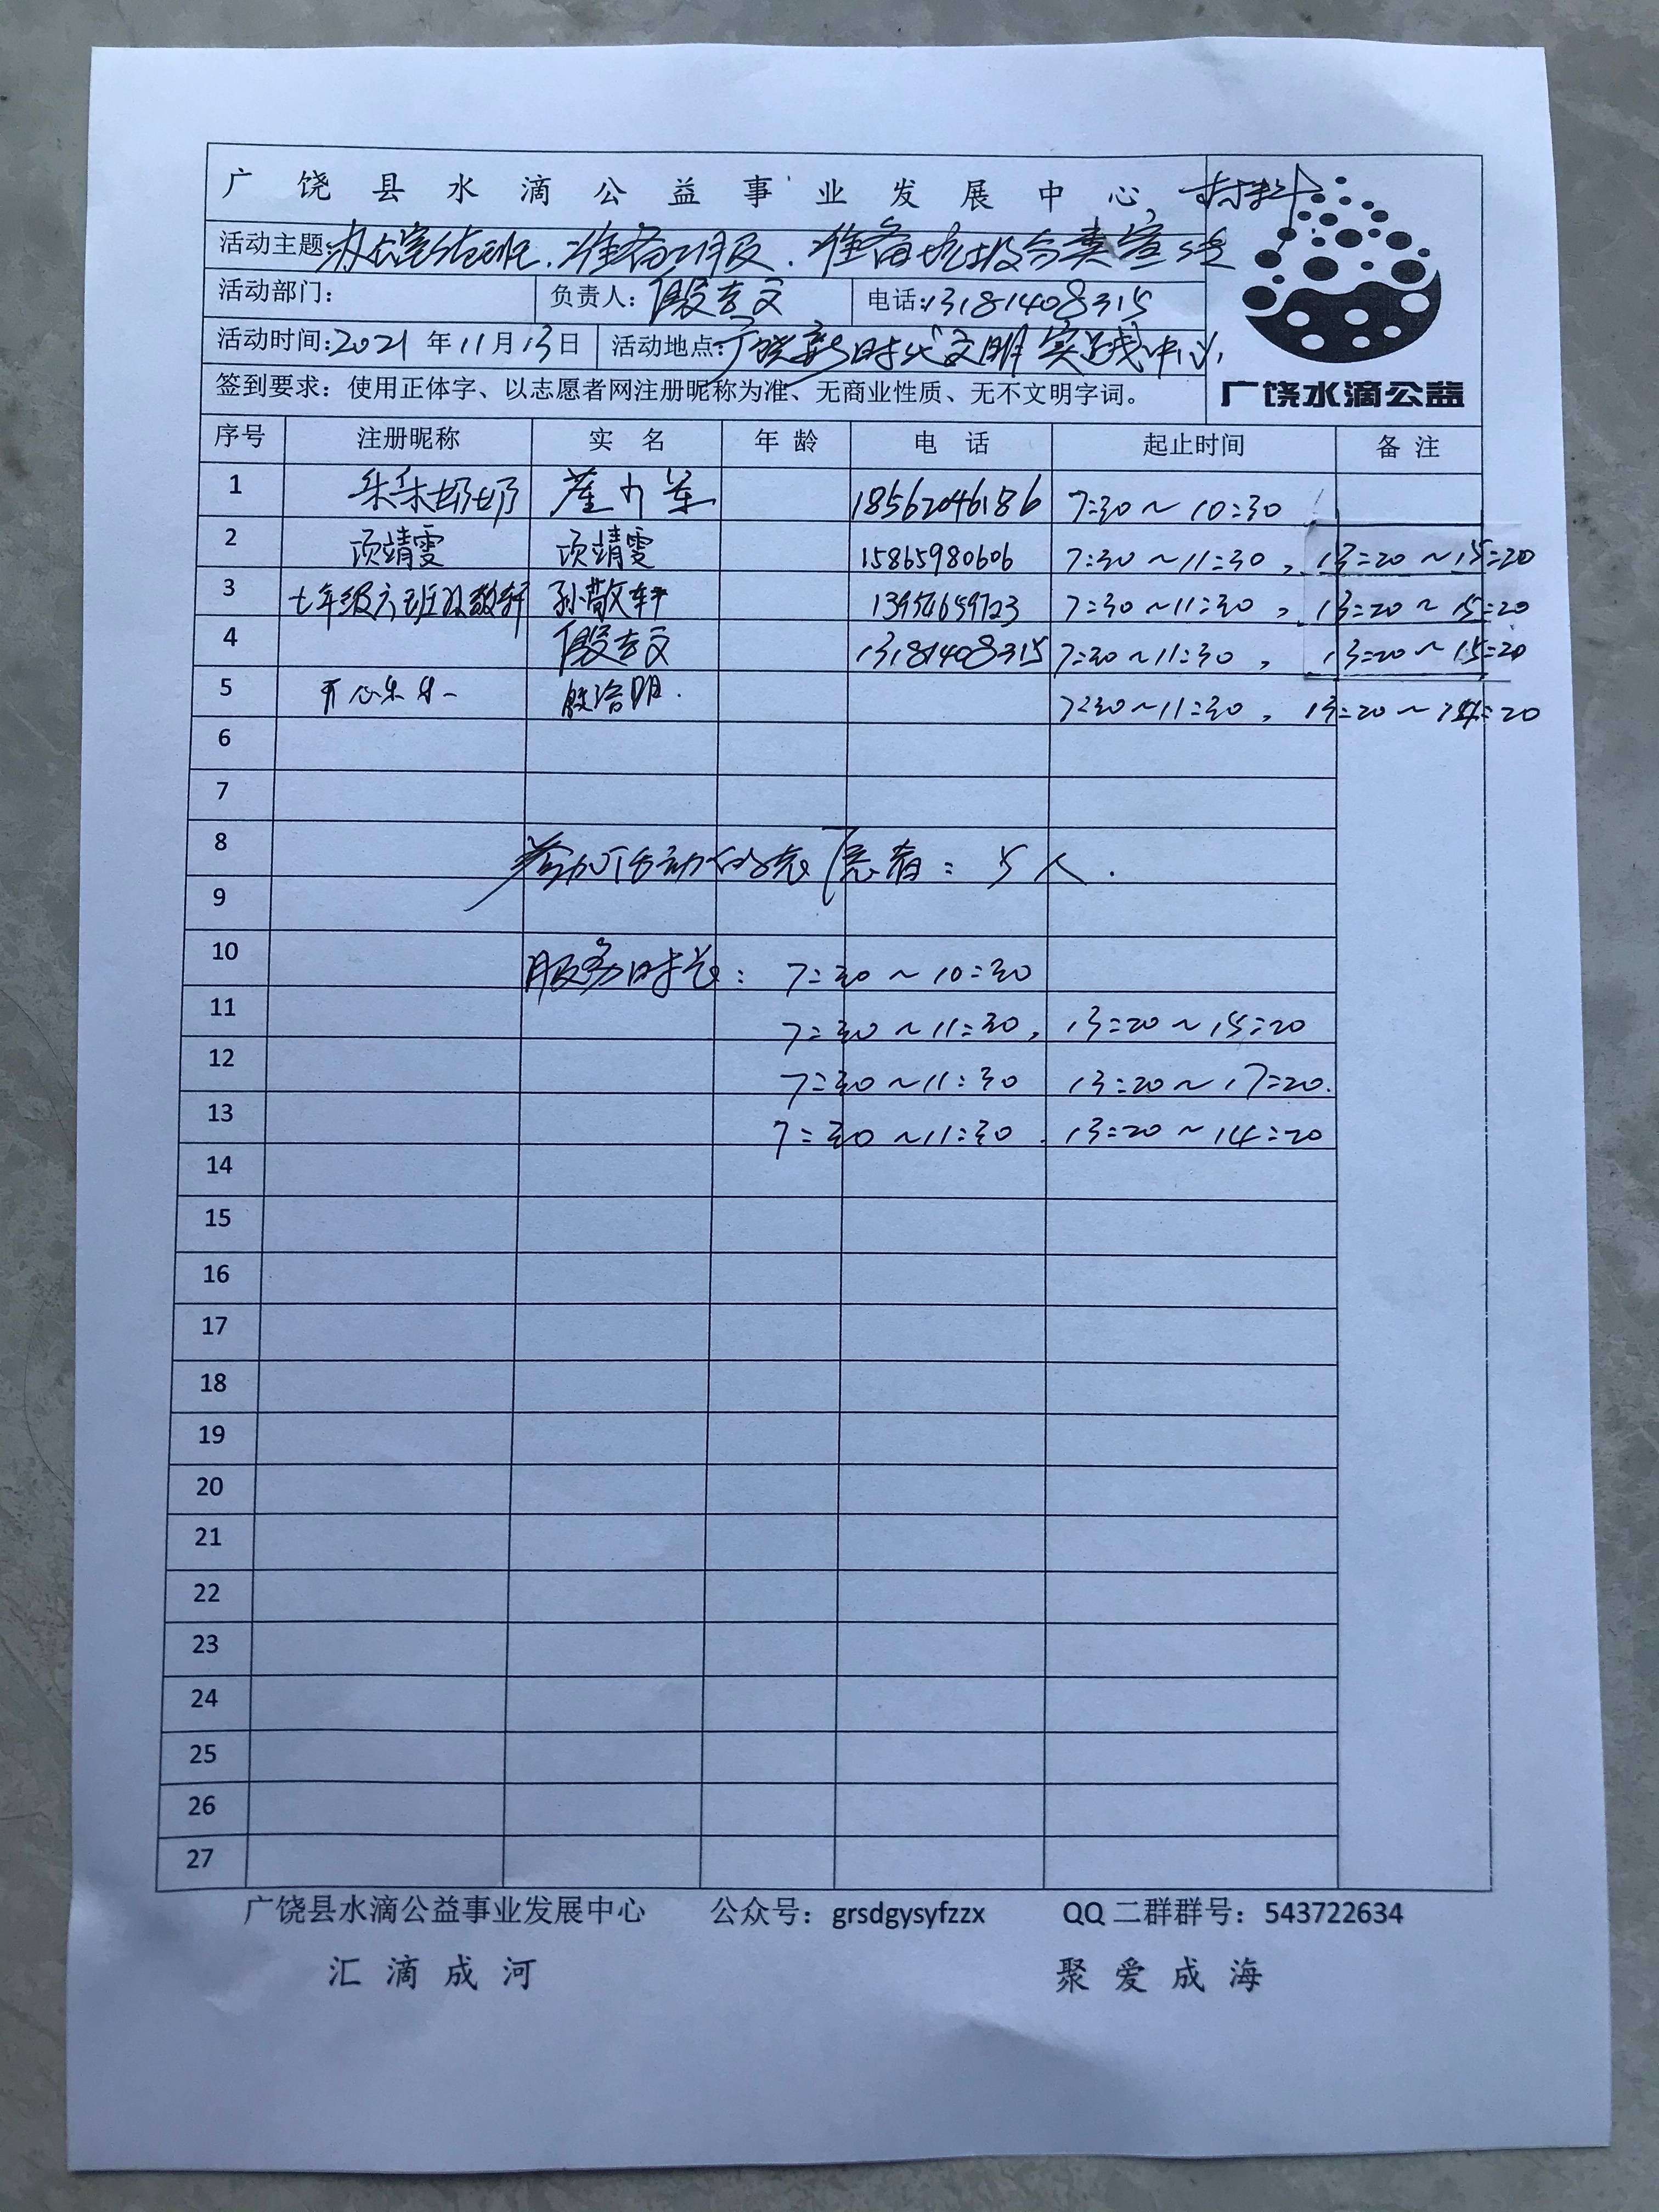 广饶县水滴公益事业发展中心 材料
活动主题:办公室值班、准备计报、准备垃圾分类宣传
活动部门: 负责人: 殷吉文 电话:13181408315
活动时间:2021年11月13日 活动地点:广饶新时代文明实践中心
签到要求：使用正体字、以志愿者网注册昵称为准、无商业性质、无不文明字词。
广饶水滴公益
序号 注册昵称 实名 年龄 电话 起止时间 备注
1 朵朵奶奶 18562046186 7:30~10:30
2 项靖雯 项靖雯 15865980606 7:30~11:30, 13:20~15:20
3 七年级六班孙敬轩 孙敬轩 13954659723 7:30~11:30, 13:20~15:20
4 殷吉文 13181408315 7:30~11:30, 13:20~15:20
5 开心 殷治明. 7:30~11:30, 13:20~14:20
6
7
8 参加活动的志愿者: 5人.
9
10 服务时长: 7:30~10:30
11 7:30~11:30, 13:20~15:20
12 7:30~11:30 13:20~17:20.
13 7:30~11:30. 13:20~14:20
14
15
16
17
18
19
20
21
22
23
24
25
26
27
广饶县水滴公益事业发展中心 公众号：grsdgysyfzzx QQ二群群号：543722634
汇滴成河 聚爱成海